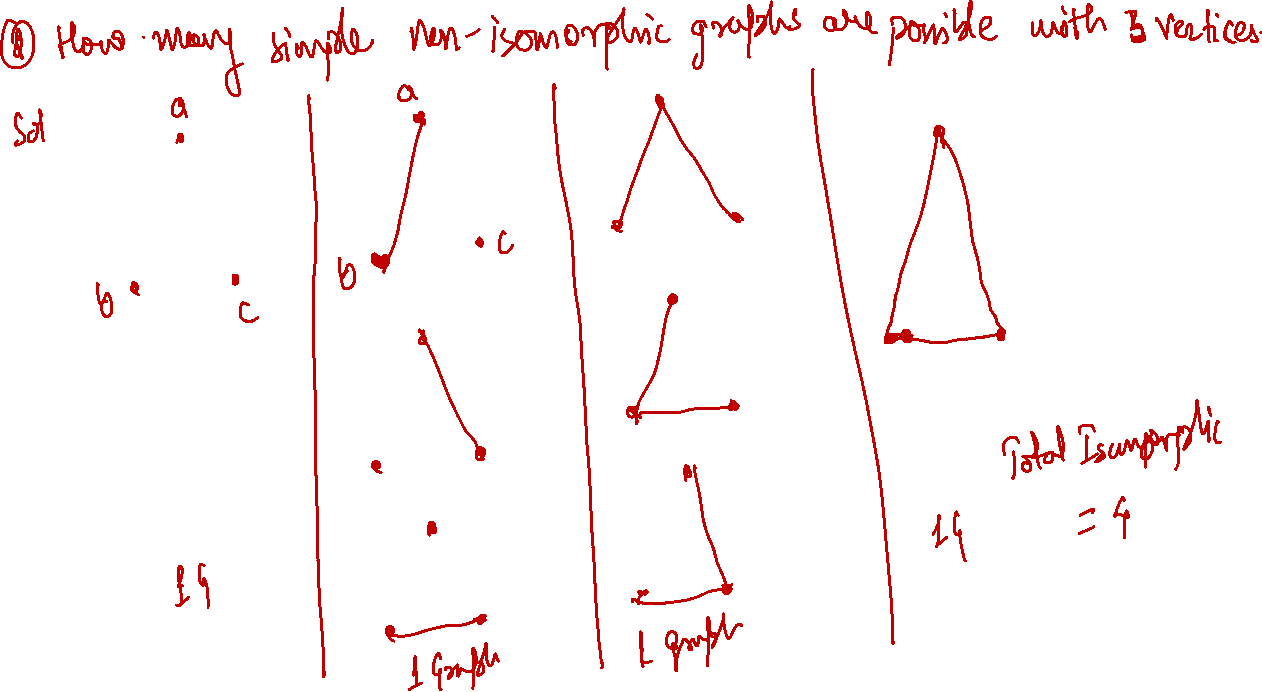 Q How many simple non-isomorphic graphs are possible with 3 vertices.
Sol
a
b
c
1G
a
b
c
1 Graph
1 graph
1G
Total Isomorphic
= 4